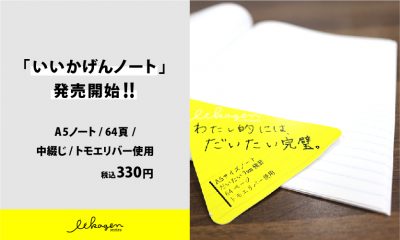 「いいかげんノート」
発売開始!!
A5ノート / 64頁 /
中綴じ / トモエリバー使用
税込330円
iikagen
わたし的には、
だいたい完璧。
A5サイズノート
だいたい7mm横罫
64ページ
トモエリバー使用